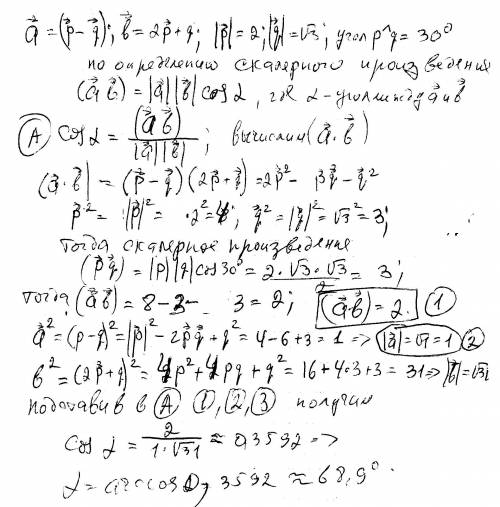 a⃗ = (p⃗ - q⃗); b⃗ = 2p⃗ + q; |p⃗| = 2; |q⃗| = √3; угол p^q = 30°
по определению скалярного произведения
(a⃗ b⃗) = |a⃗| |b⃗| cos α, где α - угол между a⃗ и b⃗
Ⓐ cos α = (a⃗ b⃗) / |a⃗| |b⃗| ; вычислим (a⃗ · b⃗)
(a⃗ · b⃗| = (p⃗ - q⃗) (2p⃗ + q⃗) = 2p⃗² - p⃗q⃗ - q⃗²
p⃗² = |p⃗|² = 2² = 4; q⃗² = |q⃗|² = √3² = 3;
Тогда скалярное произведение
(p⃗ q⃗) = |p| |q| cos 30° = 2 · √3 · √3 / 2 = 3;
тогда (a⃗ b⃗) = 8 - 3 - 3 = 2; (a⃗ b⃗) = 2. ①
a⃗² = (p - q)² = |p⃗|² - 2p⃗q⃗ + q² = 4 - 6 + 3 = 1 => |a⃗| = √1 = 1 ②
b² = (2p⃗ + q)² = 4p² + 4pq + q² = 16 + 4·3 + 3 = 31 => |b⃗| = √31
подставив в Ⓐ ①, ②, ③ получим
cos α = 2 / 1·√31 ≈ 0,3592 =>
α = arccos 0,3592 ≈ 68,9°.